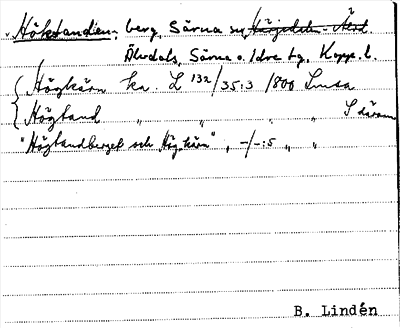 Hökstanden, berg, Särna sn,
Älvdals, Särna o. Idre tg, Kopp. l.
Högkärn ka. L 132/35:3 1800 Lmsa
Högtand " " " " S därom
"Högtandberget och Hög kärn", -/-:5 " "
B. Lindén